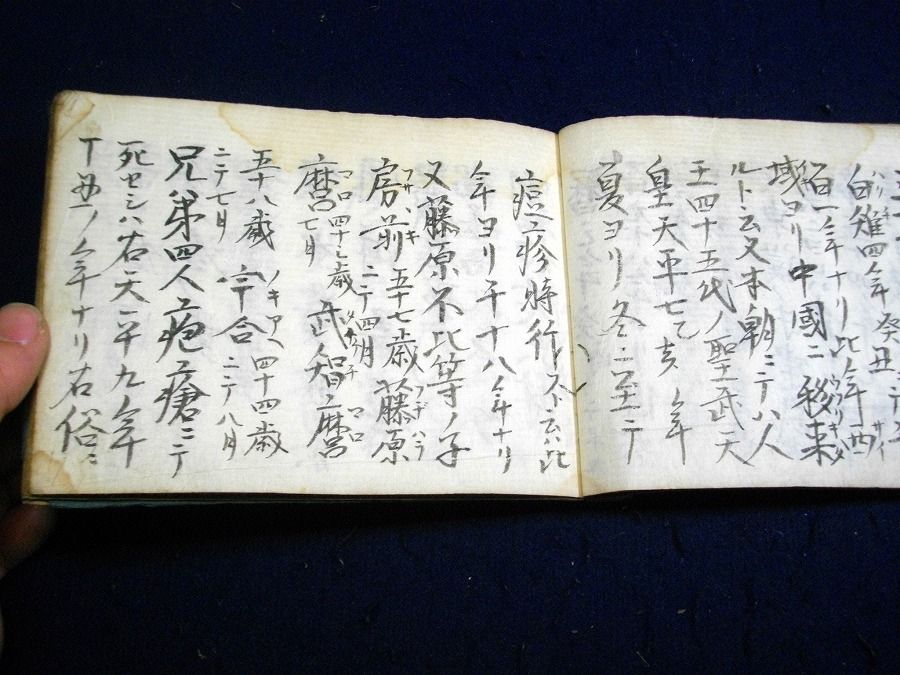 白雉四年癸丑
百一年ナリ此年西
域ヨリ中國ニ移来
ルト云又本朝ニテハ人
王四十五代ノ聖武天
皇天平七乙亥年
夏ヨリ冬ニ至ニテ
痘疹時行スト云ハ此
年ヨリ千十八年ナリ
又藤原不比等ノ子
房前ニテ四月五十七歳藤原
麿七月四十三歳武智麿
五十八歳ニテ七月宇合四十四歳ニテ八月
兄弟四人疱瘡ニテ
死セシハ右天平九年
丁丑ノ年ナリ右俗ニ